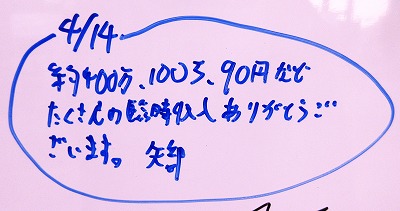 4/14
約400万、100万、90円など
たくさんの臨時収入ありがとうご
ざいます。 矢部